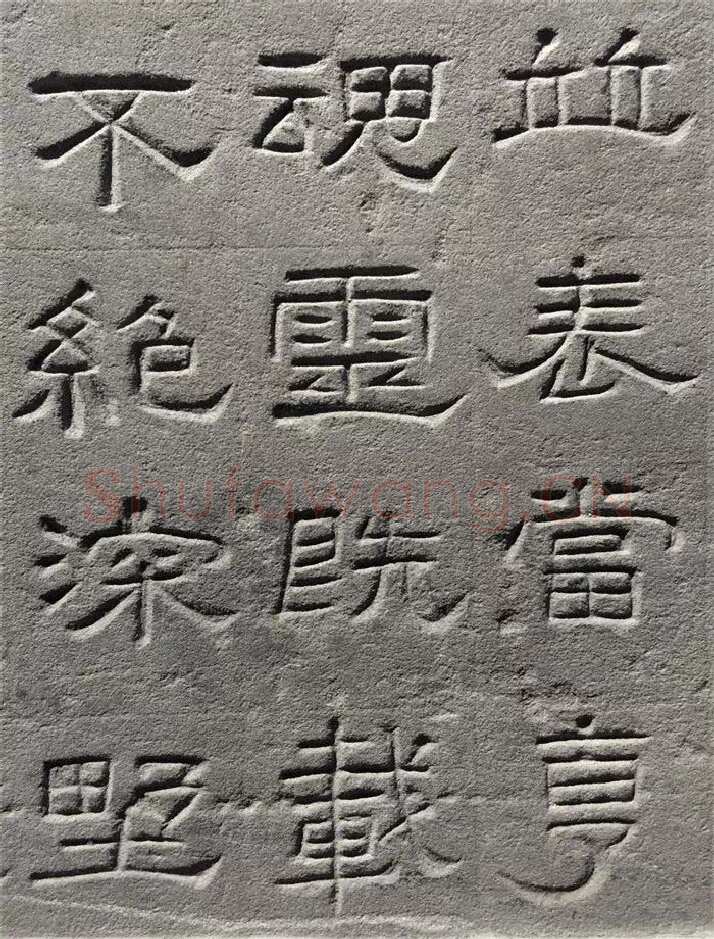 並表當亨
魂靈既載
不絕深野
Shufawang.CN